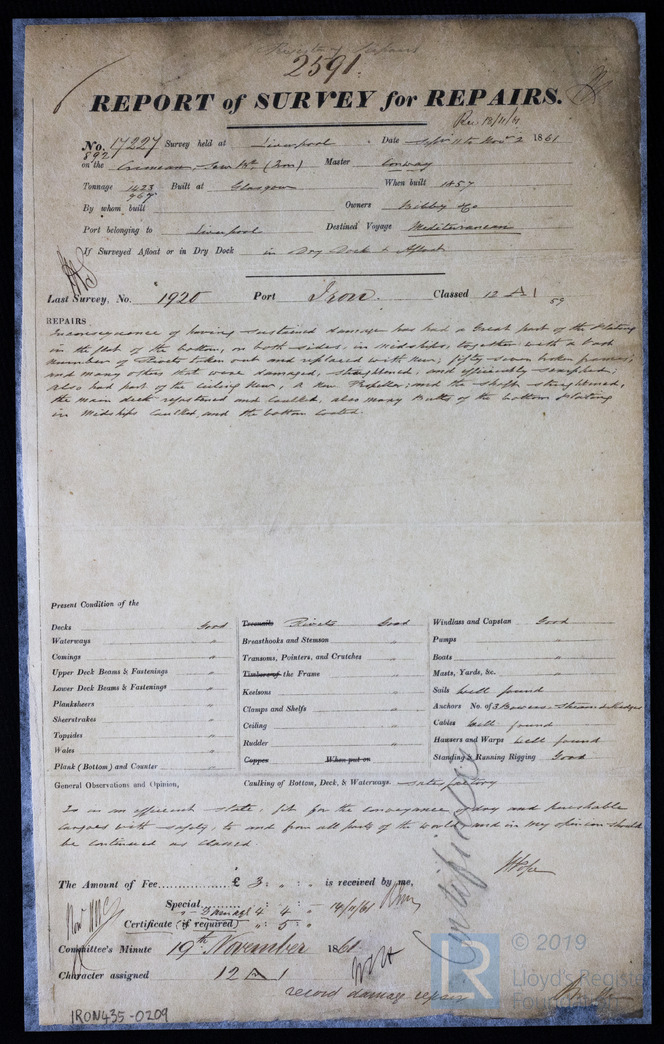 2591.
REPORT of SURVEY for REPAIRS.
Rec. 18/11/61
No. 17227 Survey held at Liverpool Date Sept 11 to Nov 2 1861
892
on the Crimean, Screw (Iron) Master Conway
Tonnage 1423 Built at Glasgow When built 1857
967
By whom built Owners Bibby &Co
Port belonging to Liverpool Destined Voyage Mediterranean
If Surveyed Afloat or in Dry Dock in Dry Dock & Afloat
Last Survey, No. 1920 Port Iron. Classed 12 A 1 59
REPAIRS
In consequence of having sustained damage has had a Great part of the Plating
in the flat of the bottom, on both sides, in midships, together with a vast
number of Rivets taken out and replaced with New; fifty seven broken frames,
and many others that were damaged, straightened, and efficiently
also had part of the Ceiling New, a New Propeller, and the Shaft straightened,
the main deck refastened and Caulked, also many Butts of the bottom Plating
in Midships Caulked, and the bottom Coated.
Present Condition of the
Decks Good
Waterways "
Comings "
Upper Deck Beams & Fastenings "
Lower Deck Beams & Fastenings "
Planksheers "
Sheerstrakes "
Topsides "
Wales "
Plank (Bottom) and Counter "
Treenails Rivets Good
Breasthooks and Stemson "
Transoms, Pointers, and Crutches "
Timbers of the Frame "
Keelsons "
Clamps and Shelfs "
Ceiling "
Rudder "
Copper When put on
Windlass and Capstan Good
Pumps "
Boats "
Masts, Yards, &c. "
Sails Well found
Anchors No. of 3 Bowers Stream & Kedges
Cables Well found
Hawsers and Warps Well found
Standing & Running Rigging Good
General Observations and Opinion, Caulking of Bottom, Deck, & Waterways. satisfactory
Is in an efficient state, fit for the conveyance of dry and perishable
Cargoes with safety, to and from all parts of the world and in my opinion should
be continued as Classed.
The Amount of Fee £ 3 : " : " is received by me,
Special 4 4 "
Certificate (if required) " : 5 : "
Committee's Minute 19th November 1861
Character assigned 12 A 1
record damage repairs
IRON435-0209
© 2019
Lloyd's Register
Foundation